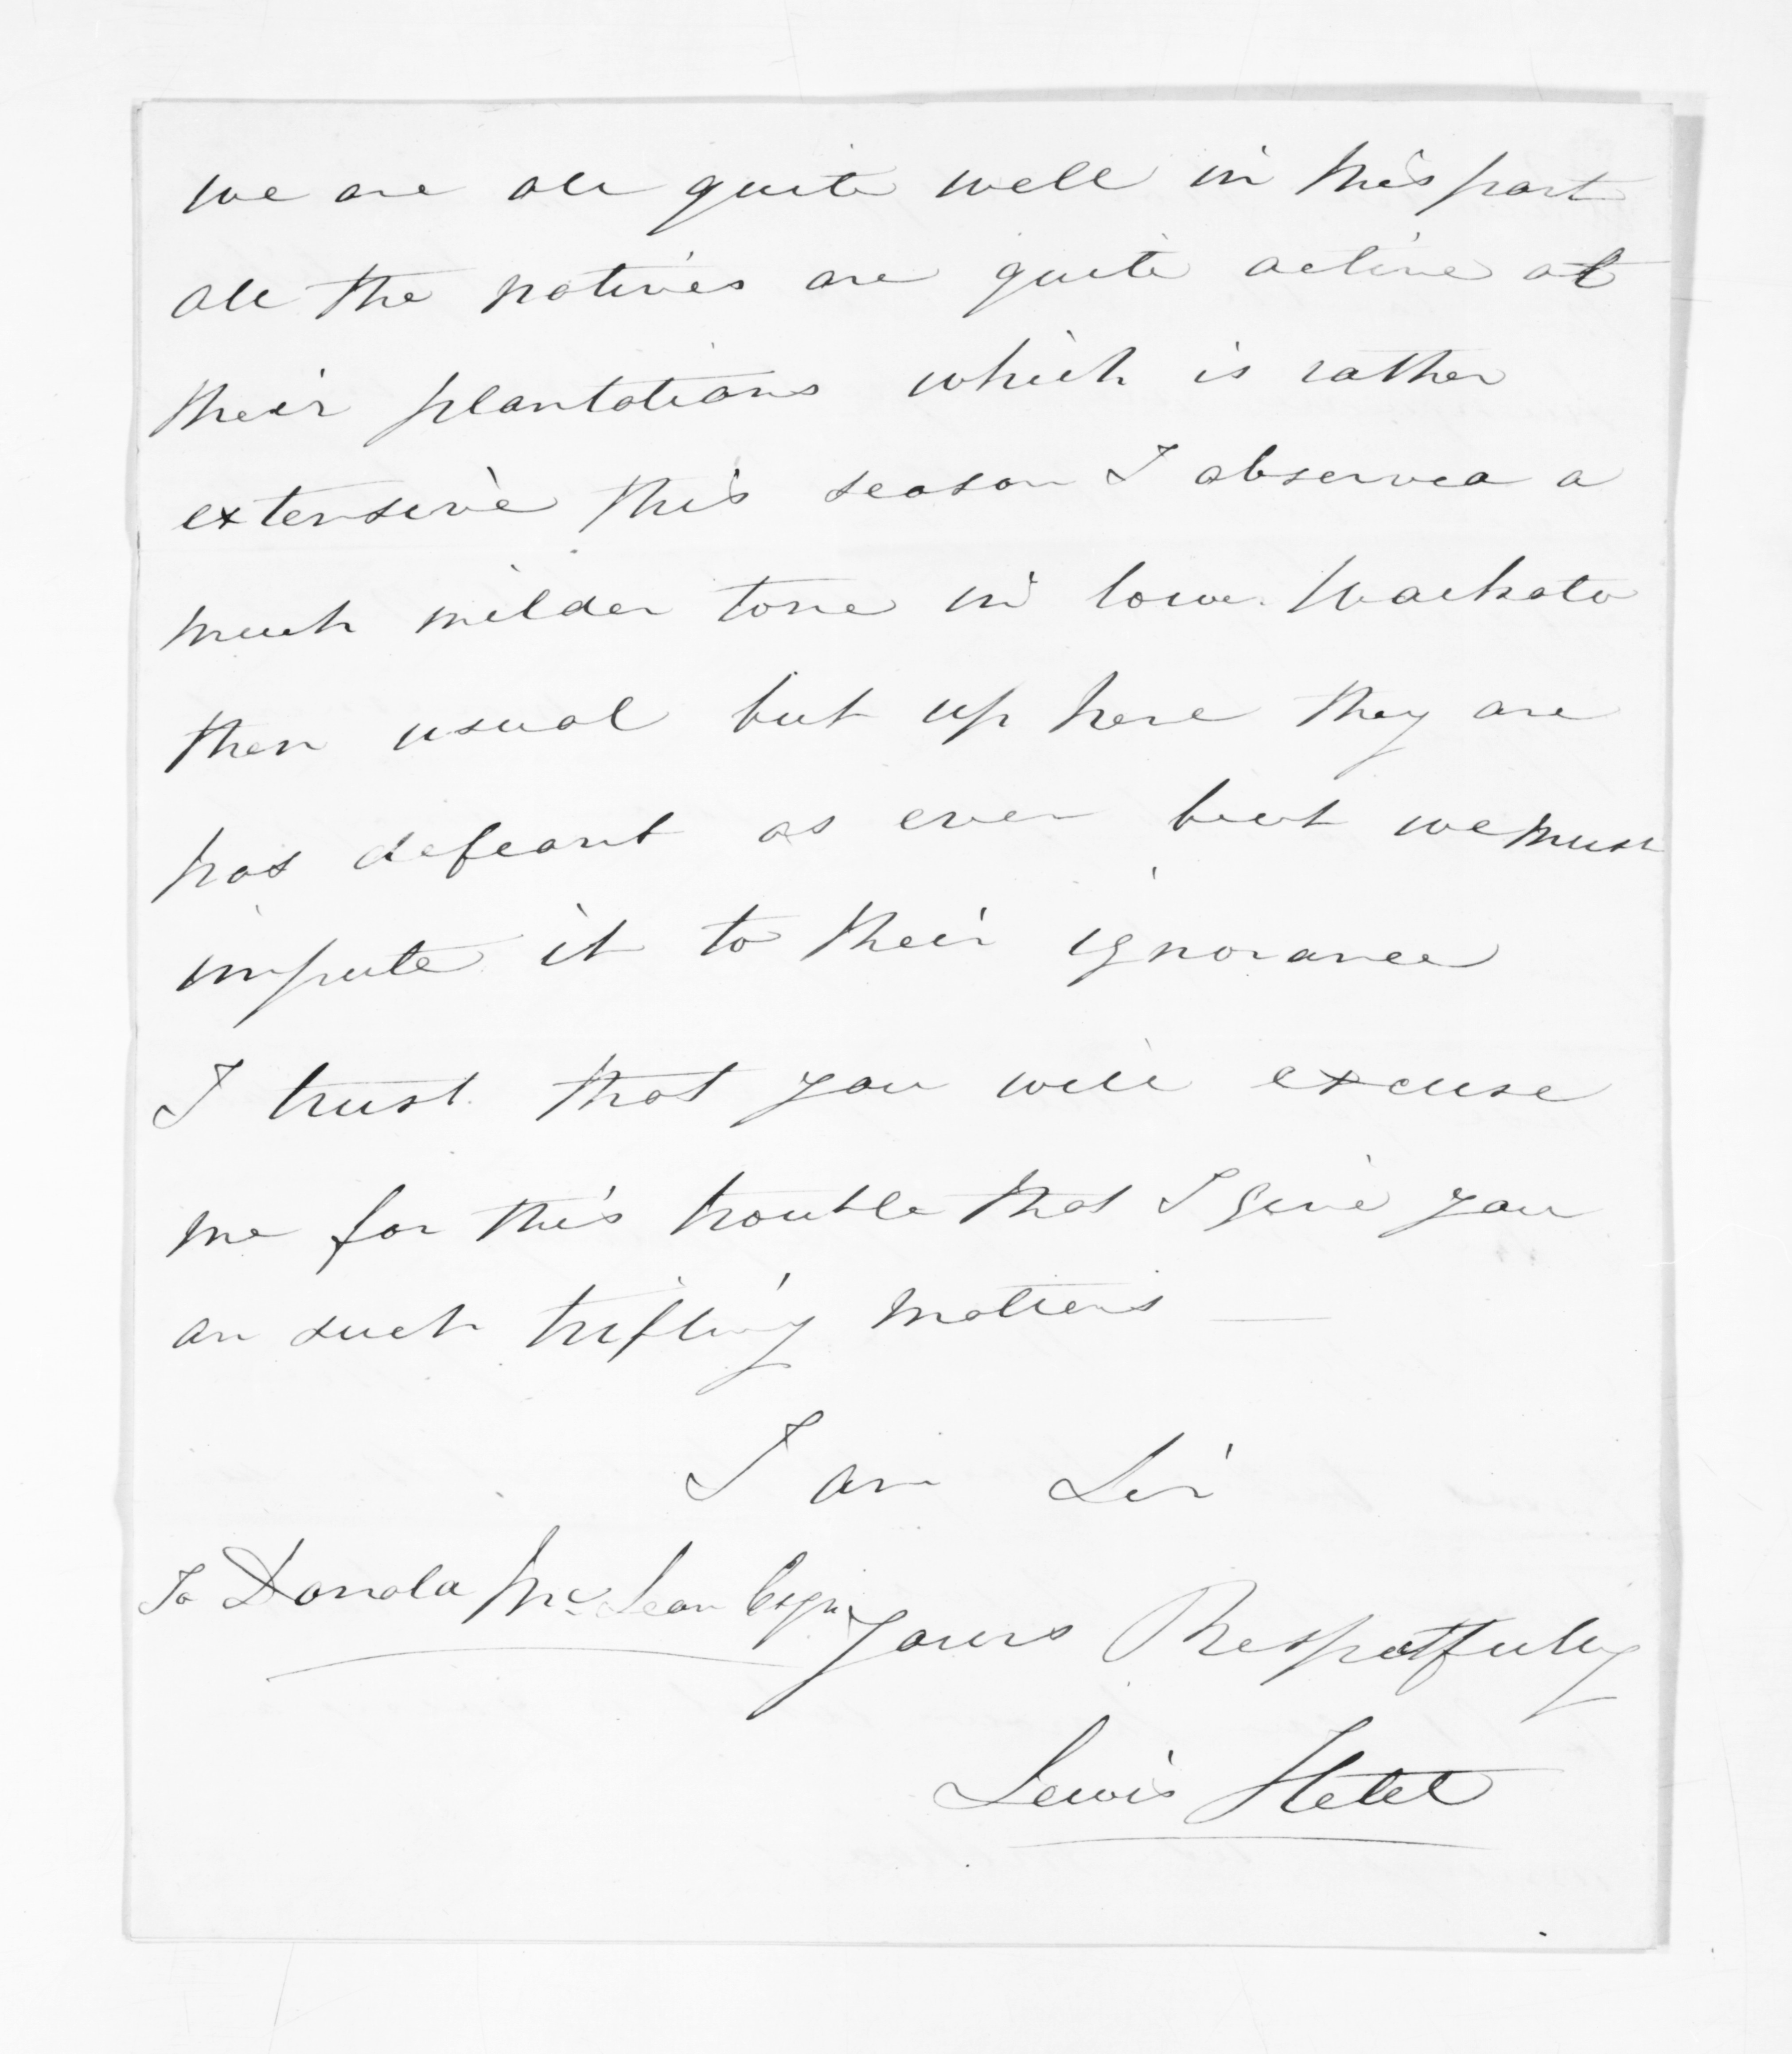 we are all quite well in this part
all the natives are quite active at
their plantations which is rather
extensive this season I observed a
much milder tone in lower Waikato
then usual but up here they are
has defiant as ever but we must
impute it to their ignorance
I trust that you will excuse
me for this trouble that I give you
on such trifling matters —
I am Sir
To Donald McLean Esqr
Yours Respectfully
Lewis Hetet